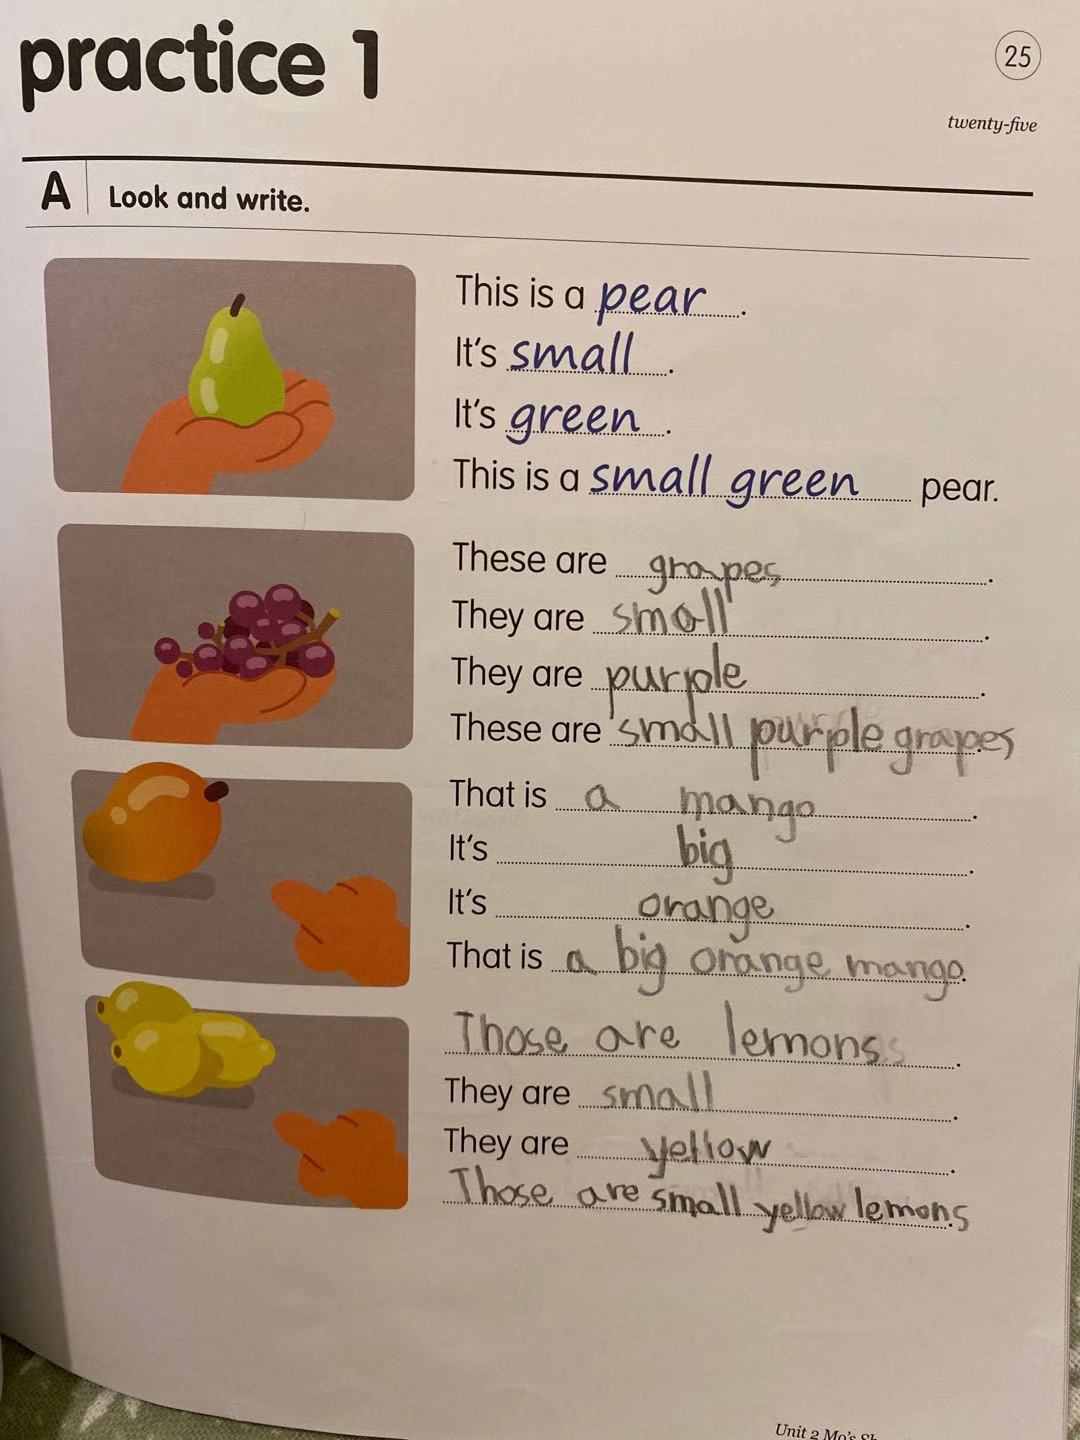 practice 1
25
twenty-five
A Look and write.
This is a pear.
It's small.
It's green.
This is a small green pear.
These are grapes.
They are small.
They are purple.
These are small purple grapes
That is a mango.
It's big.
It's orange.
That is a big orange mango.
Those are lemons.
They are small.
They are yellow.
Those are small yellow lemons.
Unit 2 Mo's